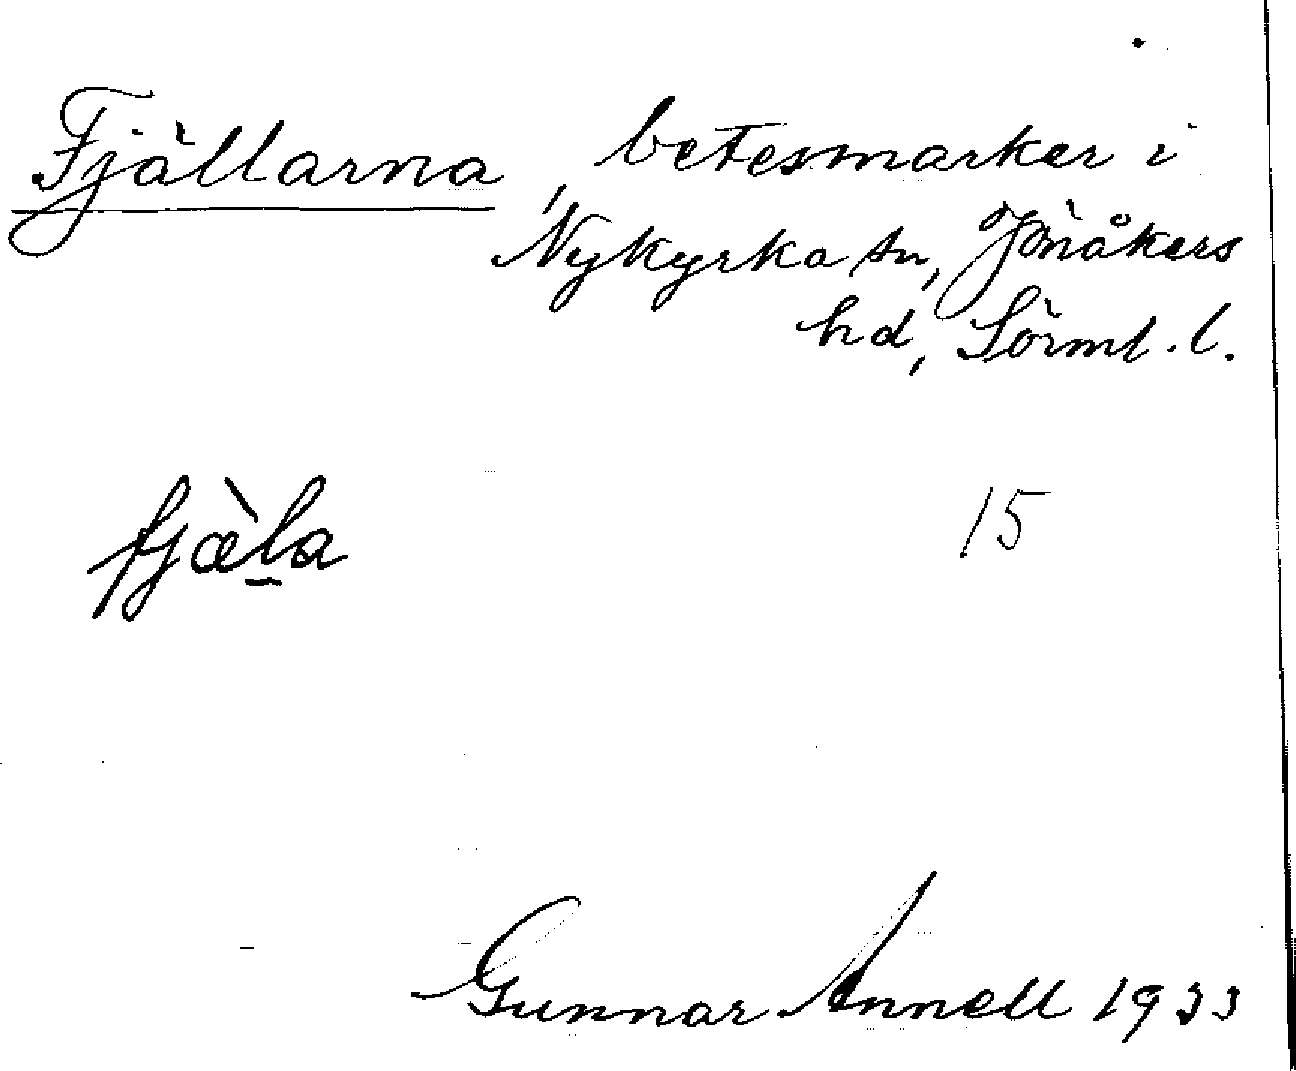 Fjällarna, betesmarker i
Nykyrka sn, Jönåkers
hd, Sörml. l.
fjæ̀l̲a
15
Gunnar Annell 1933